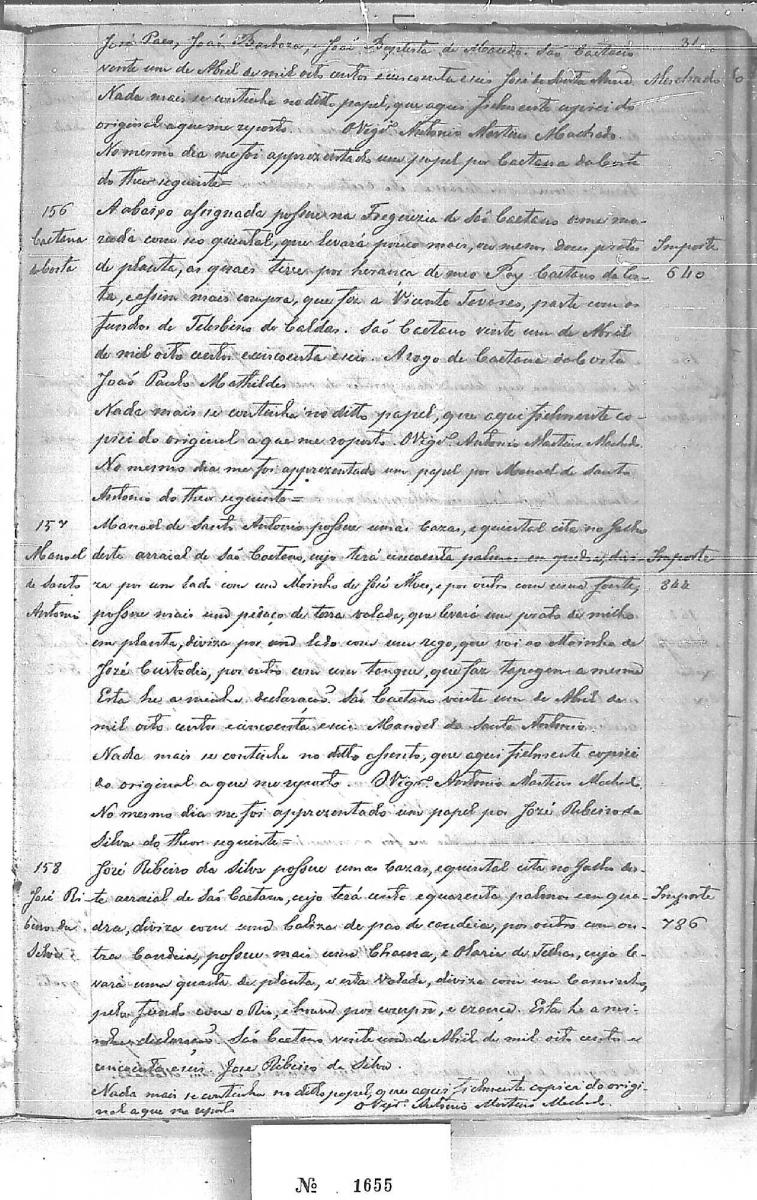 31
José Paes, João Barboza, e José Baptista de Macedo. São Caetano
vente um de Abril de mil oito centos e cincoenta e seis José de Machado
Nada mais se continha no ditto papel, que aqui fielmente copiei do
original a que me reporto. O Vigr.º Antonio Martins Machado.
No mesmo dia me foi apprezentado um papel por Caetana da Costa
do theor seguinte=
156
Caetana
da Costa
A abaixo assignada possue na Freguezia de São Caetano uma mo-
rada com seo quintal, que levará pouco mais, ou menos doces pratos
de planta, as quaes teve por herança de meo Pay Caetano da Cos-
ta, e assim mais compra, que fez a Vicente Tavares, parte com os
fundos de de Caldas. São Caetano vinte um de Abril
de mil oito centos e cincoenta e seis. A rogo de Caetana da Costa
João Paulo Mathildes
Importe
640
Nada mais se continha no ditto papel, que aqui fielmente co-
piei do original a que me reporto. O Vigr.º Antonio Martins Machado.
No mesmo dia me foi apprezentado um papel por Manoel de Santo
Antonio do theor seguinte=
157
Manoel
de Santo
Antonio
Manoel de Santo Antonio possue umas Cazas, e quintal cita no Galho
deste arraial de São Caetano, cujo terá cincoenta palmos em quadra, divi-
za por um lado com um Moinho de José Alves, e por outro com uma fonte,
possue mais um pedaço de terra valada, que levará um prato de milho
em planta, diviza por um lado com um rego, que vai ao Moinho de
José Custodio, por outro com um tanque, que faz tapagem a mesma
Esta he a minha declaração. São Caetano vinte um de Abril de
mil oito centos e cincoenta e seis. Manoel de Santo Antonio.
Importe
844
Nada mais se continha no ditto assento, que aqui fielmente copiei
do original a que me reporto. O Vigr.º Antonio Martins Machado.
No mesmo dia me foi apprezentado um papel por José Ribeiro da
Silva do theor seguinte=
158
José Ri-
beiro da
Silva
José Ribeiro da Silva possue umas Cazas, e quintal cita no Galho des-
te arraial de São Caetano, cujo terá cento e quarenta palmos em qua-
dra, diviza com uma de pao de candeia, por outro com ou-
tra Candeia, possue mais uma Chacra, e Olaria de Telhas, cuja le-
vará uma quarta de planta, e esta valada, diviza com um Caminho,
pelo fundo com o Rio, e houve por compra, e erança. Esta he a mi-
nha declaração. São Caetano vinte um de Abril de mil oito centos e
cincoenta e seis. José Ribeiro da Silva.
Importe
786
Nada mais se continha no ditto papel, que aqui fielmente copiei do origi-
nal a que me reporto O Vigr.º Antonio Martins Machado.
Nº 1655